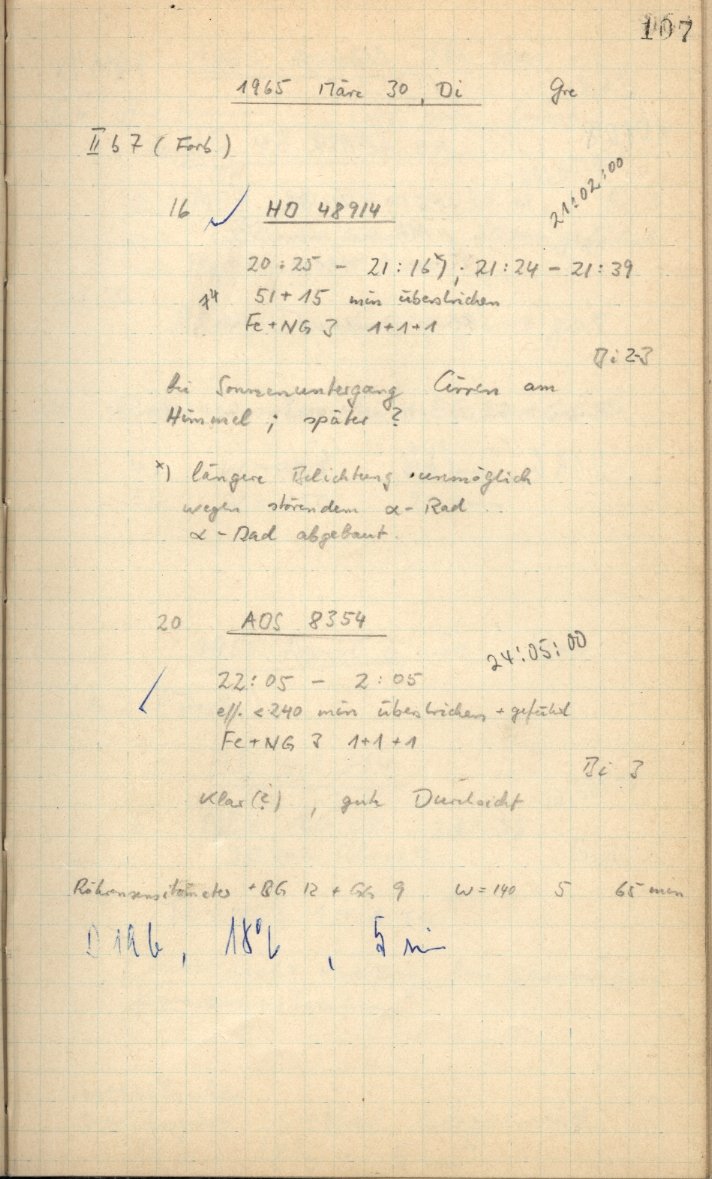 107
1965 März 30, Di Gre
II b 7 (Forb)
16 HD 48914
21:02:00
20:25 - 21:16 *) ; 21:24 - 21:39
51 + 15 min überstrichen
Fe + NG 3 1+1+1
Bi 2-3
bei Sonnenuntergang Cirren am
Himmel ; später ?
*) längere Belichtung unmöglich
wegen störendem α-Rad
α-Rad abgebaut.
20 AOS 8354
24:05:00
22:05 - 2:05
eff. < 240 min überstrichen + geführt
Fe + NG 3 1+1+1
Bi 3
Klar (?) , gute Durchsicht
Röhrensensitometer + BG 12 + GG 9 W = 140 5 65 min
D 19b, 18°, 5 min